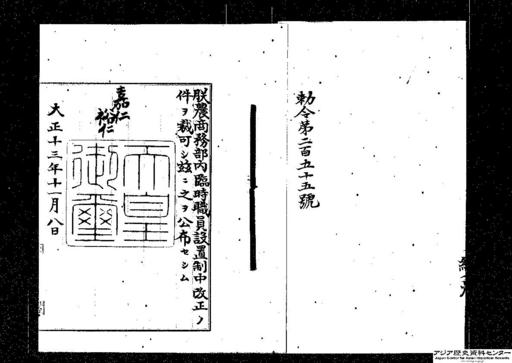 勅令第二百五十五號
朕農商務部內臨時職員設置制中改正ノ
件ヲ裁可シ茲ニ之ヲ公布セシム
嘉仁
裕仁
天皇
御璽
大正十三年十一月八日
アジア歴史資料センター
Japan Center for Asian Historical Records